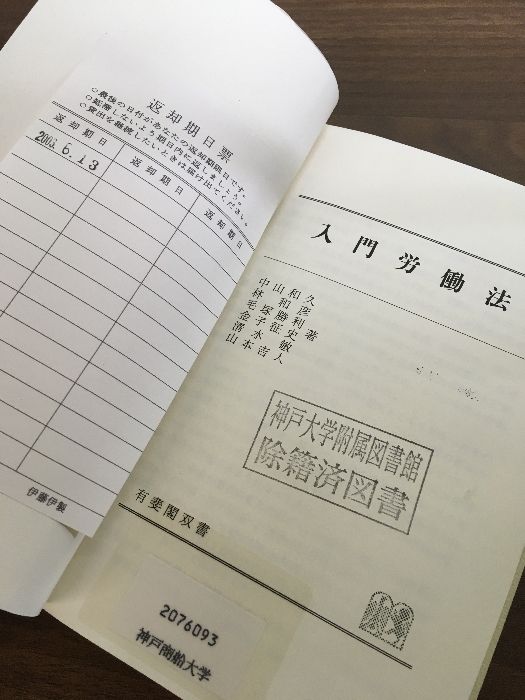 返却期日票
○最後の日付があなたの返却期限日です。
○延滞しないよう期日内に返しましょう。
○貸出を継続したいときは届け出てください。
返却期日
返却期日
返却期日
6.13
伊藤伊製
入門労働法
中山和久
林和彦
毛塚勝利著
金子征史
清水敏
山本吉人
神戸大学附属図書館
除籍済図書
有斐閣双書
2076093
神戸商船大学